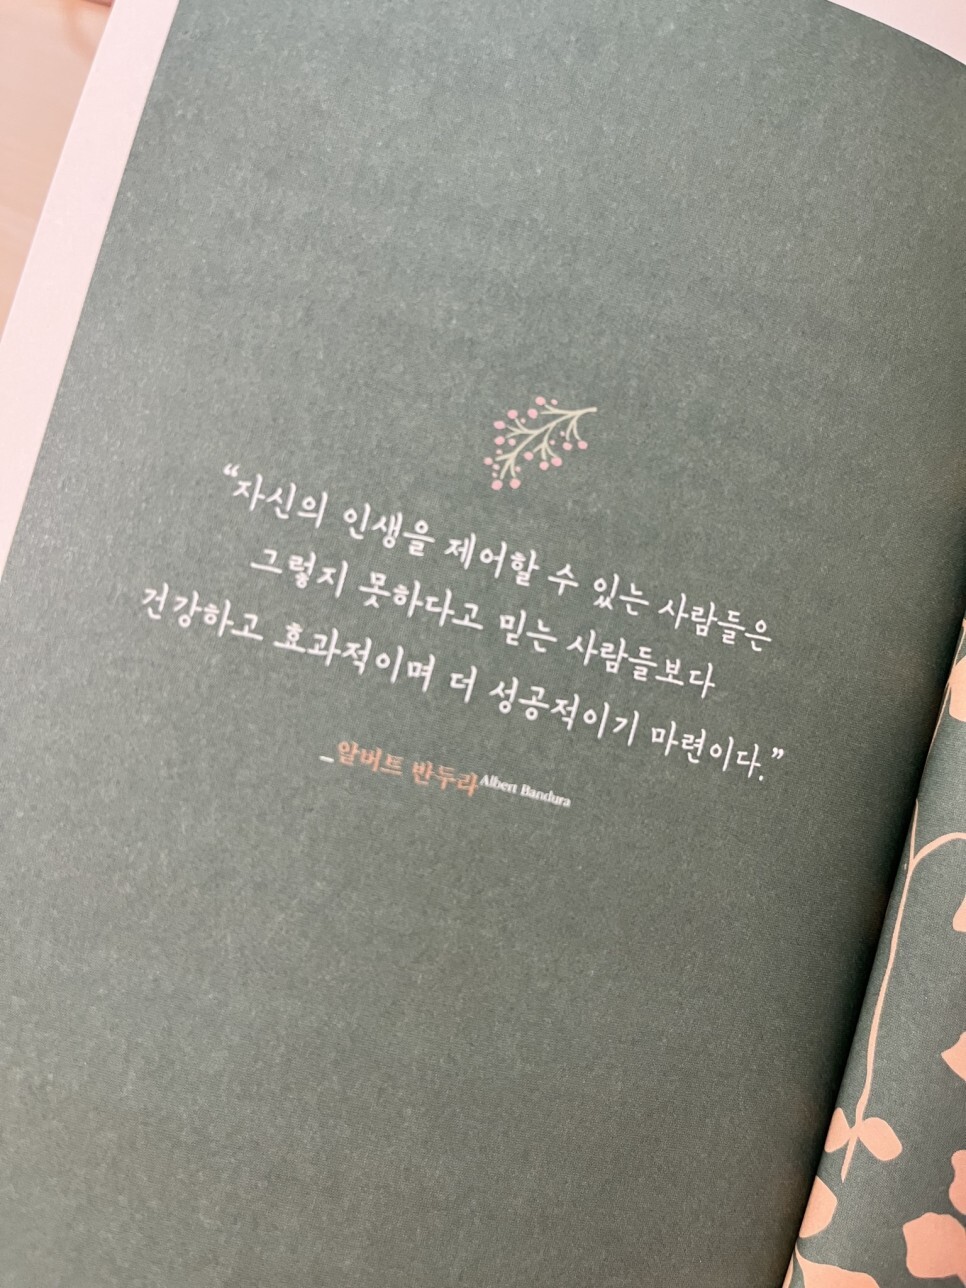 “자신의 인생을 제어할 수 있는 사람들은
그렇지 못하다고 믿는 사람들보다
건강하고 효과적이며 더 성공적이기 마련이다.”
_알버트 반두라 Albert Bandura